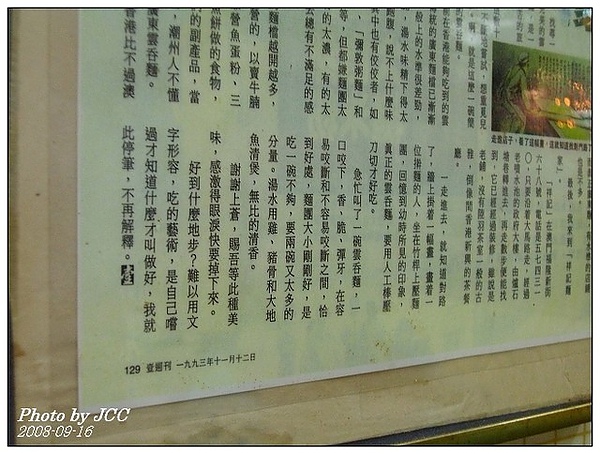 找尋一
美的雲
是一
不斷地嘗試，想重見兒
啊，就是這麼一碗簡
的雲吞麵。
在香港能夠吃到的雲
統的廣東麵檔已漸漸
般上的水準很差勁，
湯水味精下得太
跑腹，說不上什麼味
其中也有佼佼者，如
「彌敦粥麵」和
等，但都嫌麵團太
的太濃，有的太
去總有不滿足的感
麵檔越開越多，
營的，以賣牛腩
營魚蛋粉，三
魚餅做的食物，
的副產品，當
潮州人不懂
廣東雲吞麵。
香港比不過澳
走進店子，看了這幅畫，這就知道找對門路了
也是不多。
最後，我來到「祥記麵
家」。
「祥記」在澳門福隆新街
六十八號，電話是五七四三一
〇，只要沿着大馬路走，經過
老噴水池的政府大樓，由爐石
塘巷轉進去，再走數步便能找
到，它已經經過裝修，雖說是
老鋪，沒有陸羽茶室一般的古
雅，倒像間香港新興的茶餐
廳。
一走進去，就知道對路
了，牆上掛着一幅畫，畫着一
位搓麵的人，坐在竹桿上壓麵
團，回憶到幼時所見的印象，
真正的雲吞麵，要用人工棒壓
刀切才好吃。
急忙叫了一碗雲吞麵，一
口咬下，香、脆、彈牙，在容
易咬斷和不容易咬斷之間，恰
到好處，麵團大小剛剛好，是
吃一碗不夠，要兩碗又太多的
分量。湯水用雞、豬骨和大地
魚清燉，無比的清香。
謝謝上蒼，賜吾等此種美
味，感激得眼淚快要掉下來。
好到什麼地步？難以用文
字形容，吃的藝術，是自己嚐
過才知道什麼才叫做好，我就
此停筆，不再解釋。
129 壹週刊 一九九三年十一月十二日
Photo by JCC
2008-09-16